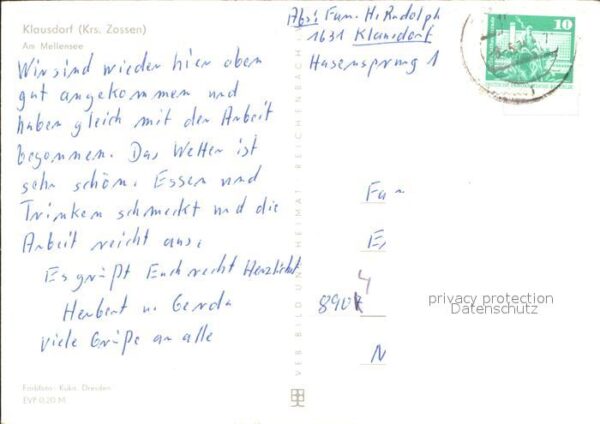 Klausdorf (Krs. Zossen)
Am Mellensee
Wir sind wieder hier oben
gut angekommen und
haben gleich mit der Arbeit
begonnen. Das Wetter ist
sehr schön. Essen und
Trinken schmeckt und die
Arbeit reicht aus.
Es grüßt Euch recht Herzlichst
Herbert u. Gerda
viele Grüße an alle
Farbfoto: Kuka, Dresden
EVP 0,20 M
VEB BILD UND HEIMAT REICHENBACH
Abs: Fam. H. Rudolph
1631 Klausdorf
Hasensprung 1
10
Fam
E
4
8902
N
privacy protection
Datenschutz